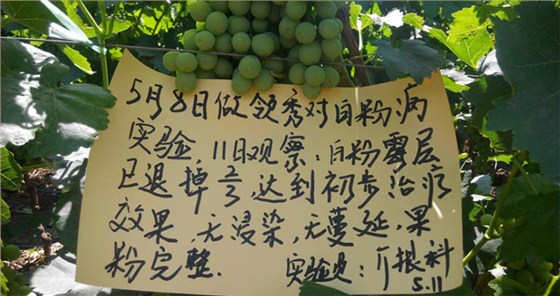 5月8日做领秀对白粉病
实验,11日观察:白粉霉层
已退掉2/3,达到初步治疗
效果,无浸染,无蔓延,果
粉完整.
实验员:介根科
5.11